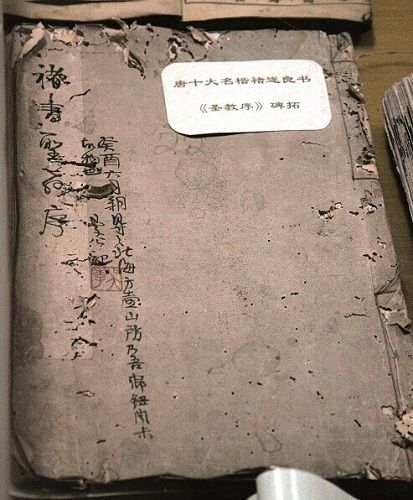 唐十大名楷褚遂良书
《圣教序》碑拓
褚書聖教序
癸酉六月朔得之北海方壺山房乃吾師